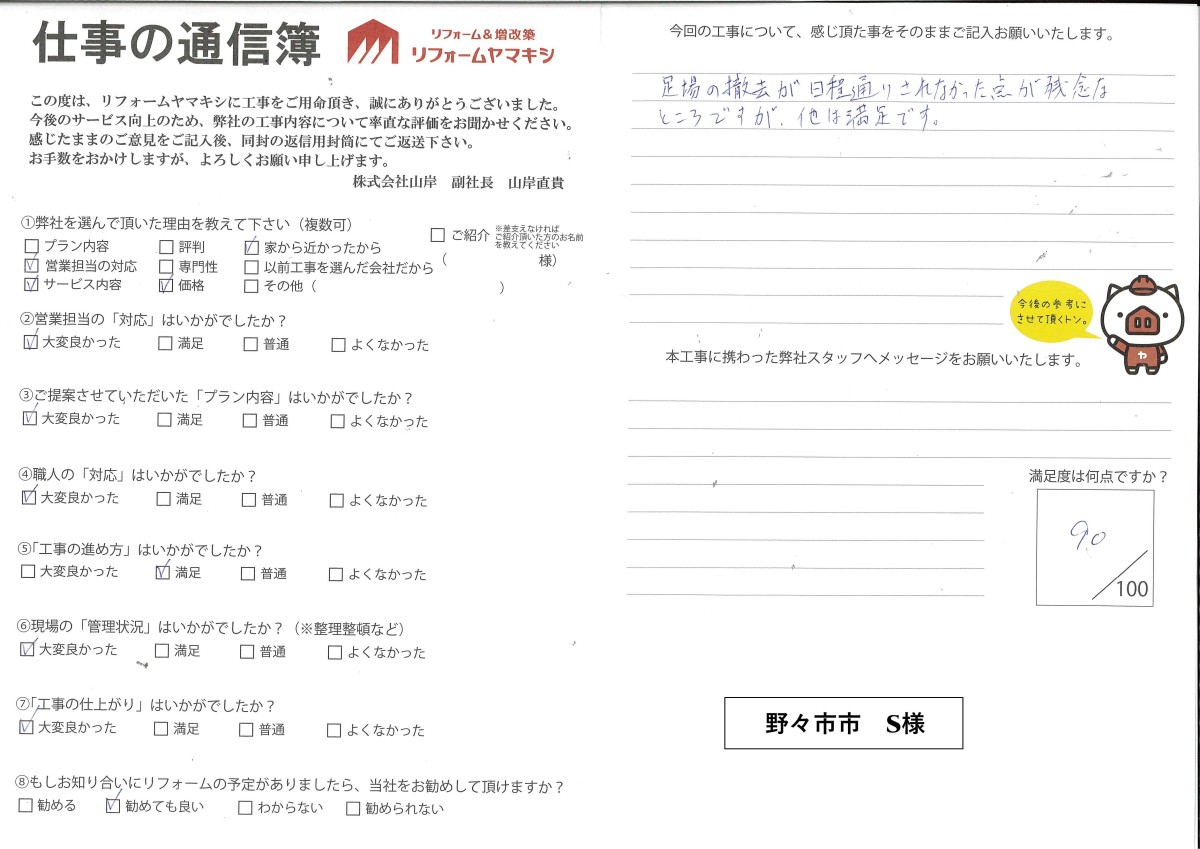 仕事の通信簿
リフォーム&増改築
リフォームヤマキシ
この度は、リフォームヤマキシに工事をご用命頂き、誠にありがとうございました。
今後のサービス向上のため、弊社の工事内容について率直な評価をお聞かせください。
感じたままのご意見をご記入後、同封の返信用封筒にてご返送下さい。
お手数をおかけしますが、よろしくお願い申し上げます。
株式会社山岸 副社長 山岸直貴
①弊社を選んで頂いた理由を教えて下さい（複数可）
□プラン内容 □評判 ☑家から近かったから □ご紹介 ※差支えなければ
ご紹介頂いた方のお名前
を教えてください
☑営業担当の対応 □専門性 □以前工事を選んだ会社だから （ 様）
☑サービス内容 ☑価格 □その他（ ）
②営業担当の「対応」はいかがでしたか？
☑大変良かった □満足 □普通 □よくなかった
③ご提案させていただいた「プラン内容」はいかがでしたか？
☑大変良かった □満足 □普通 □よくなかった
④職人の「対応」はいかがでしたか？
☑大変良かった □満足 □普通 □よくなかった
⑤「工事の進め方」はいかがでしたか？
□大変良かった ☑満足 □普通 □よくなかった
⑥現場の「管理状況」はいかがでしたか？（※整理整頓など）
☑大変良かった □満足 □普通 □よくなかった
⑦「工事の仕上がり」はいかがでしたか？
☑大変良かった □満足 □普通 □よくなかった
⑧もしお知り合いにリフォームの予定がありましたら、当社をお勧めして頂けますか？
□勧める ☑勧めても良い □わからない □勧められない
今回の工事について、感じ頂た事をそのままご記入お願いいたします。
足場の撤去が日程通りされなかった点が残念な
ところですが、他は満足です。
今後の参考に
させて頂くトン。
ヤ
本工事に携わった弊社スタッフへメッセージをお願いいたします。
満足度は何点ですか？
90
/100
野々市市 S様